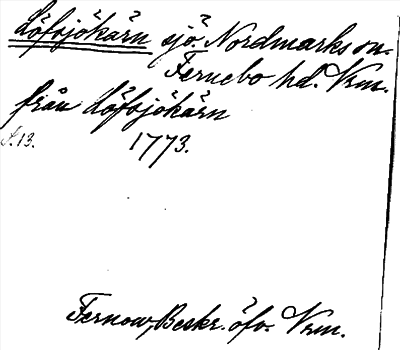 Löfsjökärn sjö. Nordmarks sn.
Fernebo hd. Vrm.
från Löfsjökärn
S. 13. 1773.
Fernow, Beskr. öfv. Vrm.